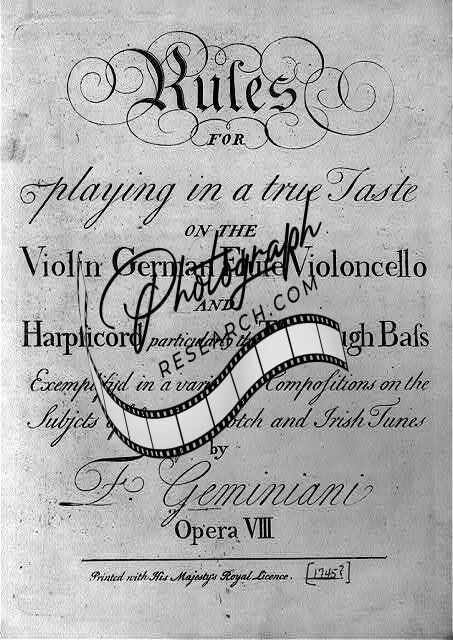 Rules
FOR
playing in a true Taste
ON THE
Violin German Flute Violoncello
AND
Harpsicord particularly the ugh Baſs
Exemplifyd in a Compoſitions on the
Subjcts and Irish Tunes
by
F. Geminiani
Opera VIII
Printed with His Majesty's Royal Licence. [1745?]
Photograph
RESEARCH.COM